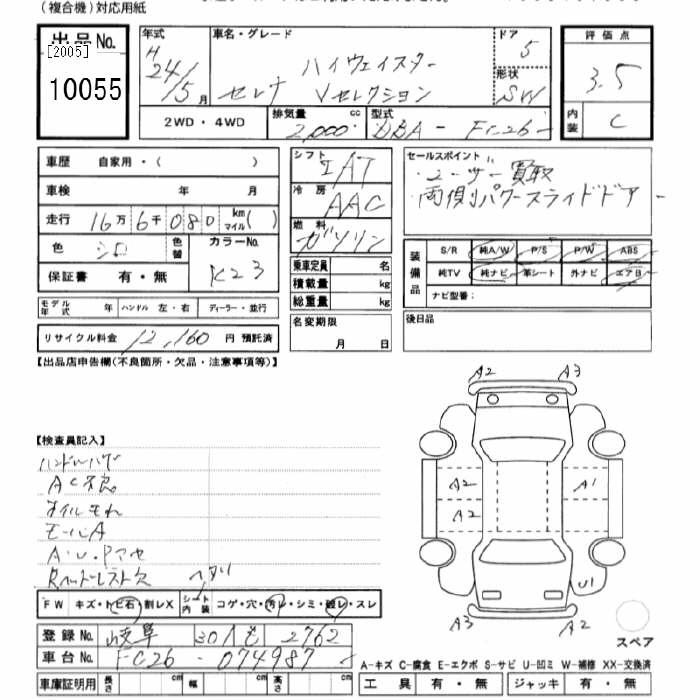 (複合機)対応用紙
出品No.
[2005]
10055
年式 車名・グレード ドア 評価点
H 24/5月 セレナ ハイウェイスター Vセレクション 5 3.5
形状 SW
内装 C
2WD・4WD 排気量 2,000 cc 型式 DBA-FC26-
車歴 自家用・( )
車検 年 月
走行 16万6千080 km マイル( )
色 シロ 色替 カラーNo. K23
保証書 有・無
モデル年式 年 ハンドル 左・右 ディーラー・並行
リサイクル料金 12,160 円 預託済
シフト IAT
冷房 AAC
燃料 ガソリン
乗車定員 名
積載量 kg
総重量 kg
名変期限
月 日
セールスポイント
・ユーザー買取
・両側パワースライドドアー
装備品 S/R 純A/W P/S P/W ABS
純TV 純ナビ 革シート 外ナビ エアB
ナビ型番:
後日品
【出品店申告欄(不良箇所・欠品・注意事項等)】
【検査員記入】
ハンドルハゲ
AC不良
オイルもれ
モールA
A・U・Pアセ
Rハードレスト欠
A2 A3
A2 A1
A2
U1
A3 A2
スペア
FW キズ・トビ石・割レX シート内装 ヘタリ コゲ・穴・汚レ・シミ・破レ・スレ
登録No. 岐阜 301 も 2762
車台No. FC26-074987
A-キズ C-腐食 E-エクボ S-サビ U-凹ミ W-補修 XX-交換済
車庫証明用 長さ cm 幅 cm 高さ cm
工具 有・無 ジャッキ 有・無